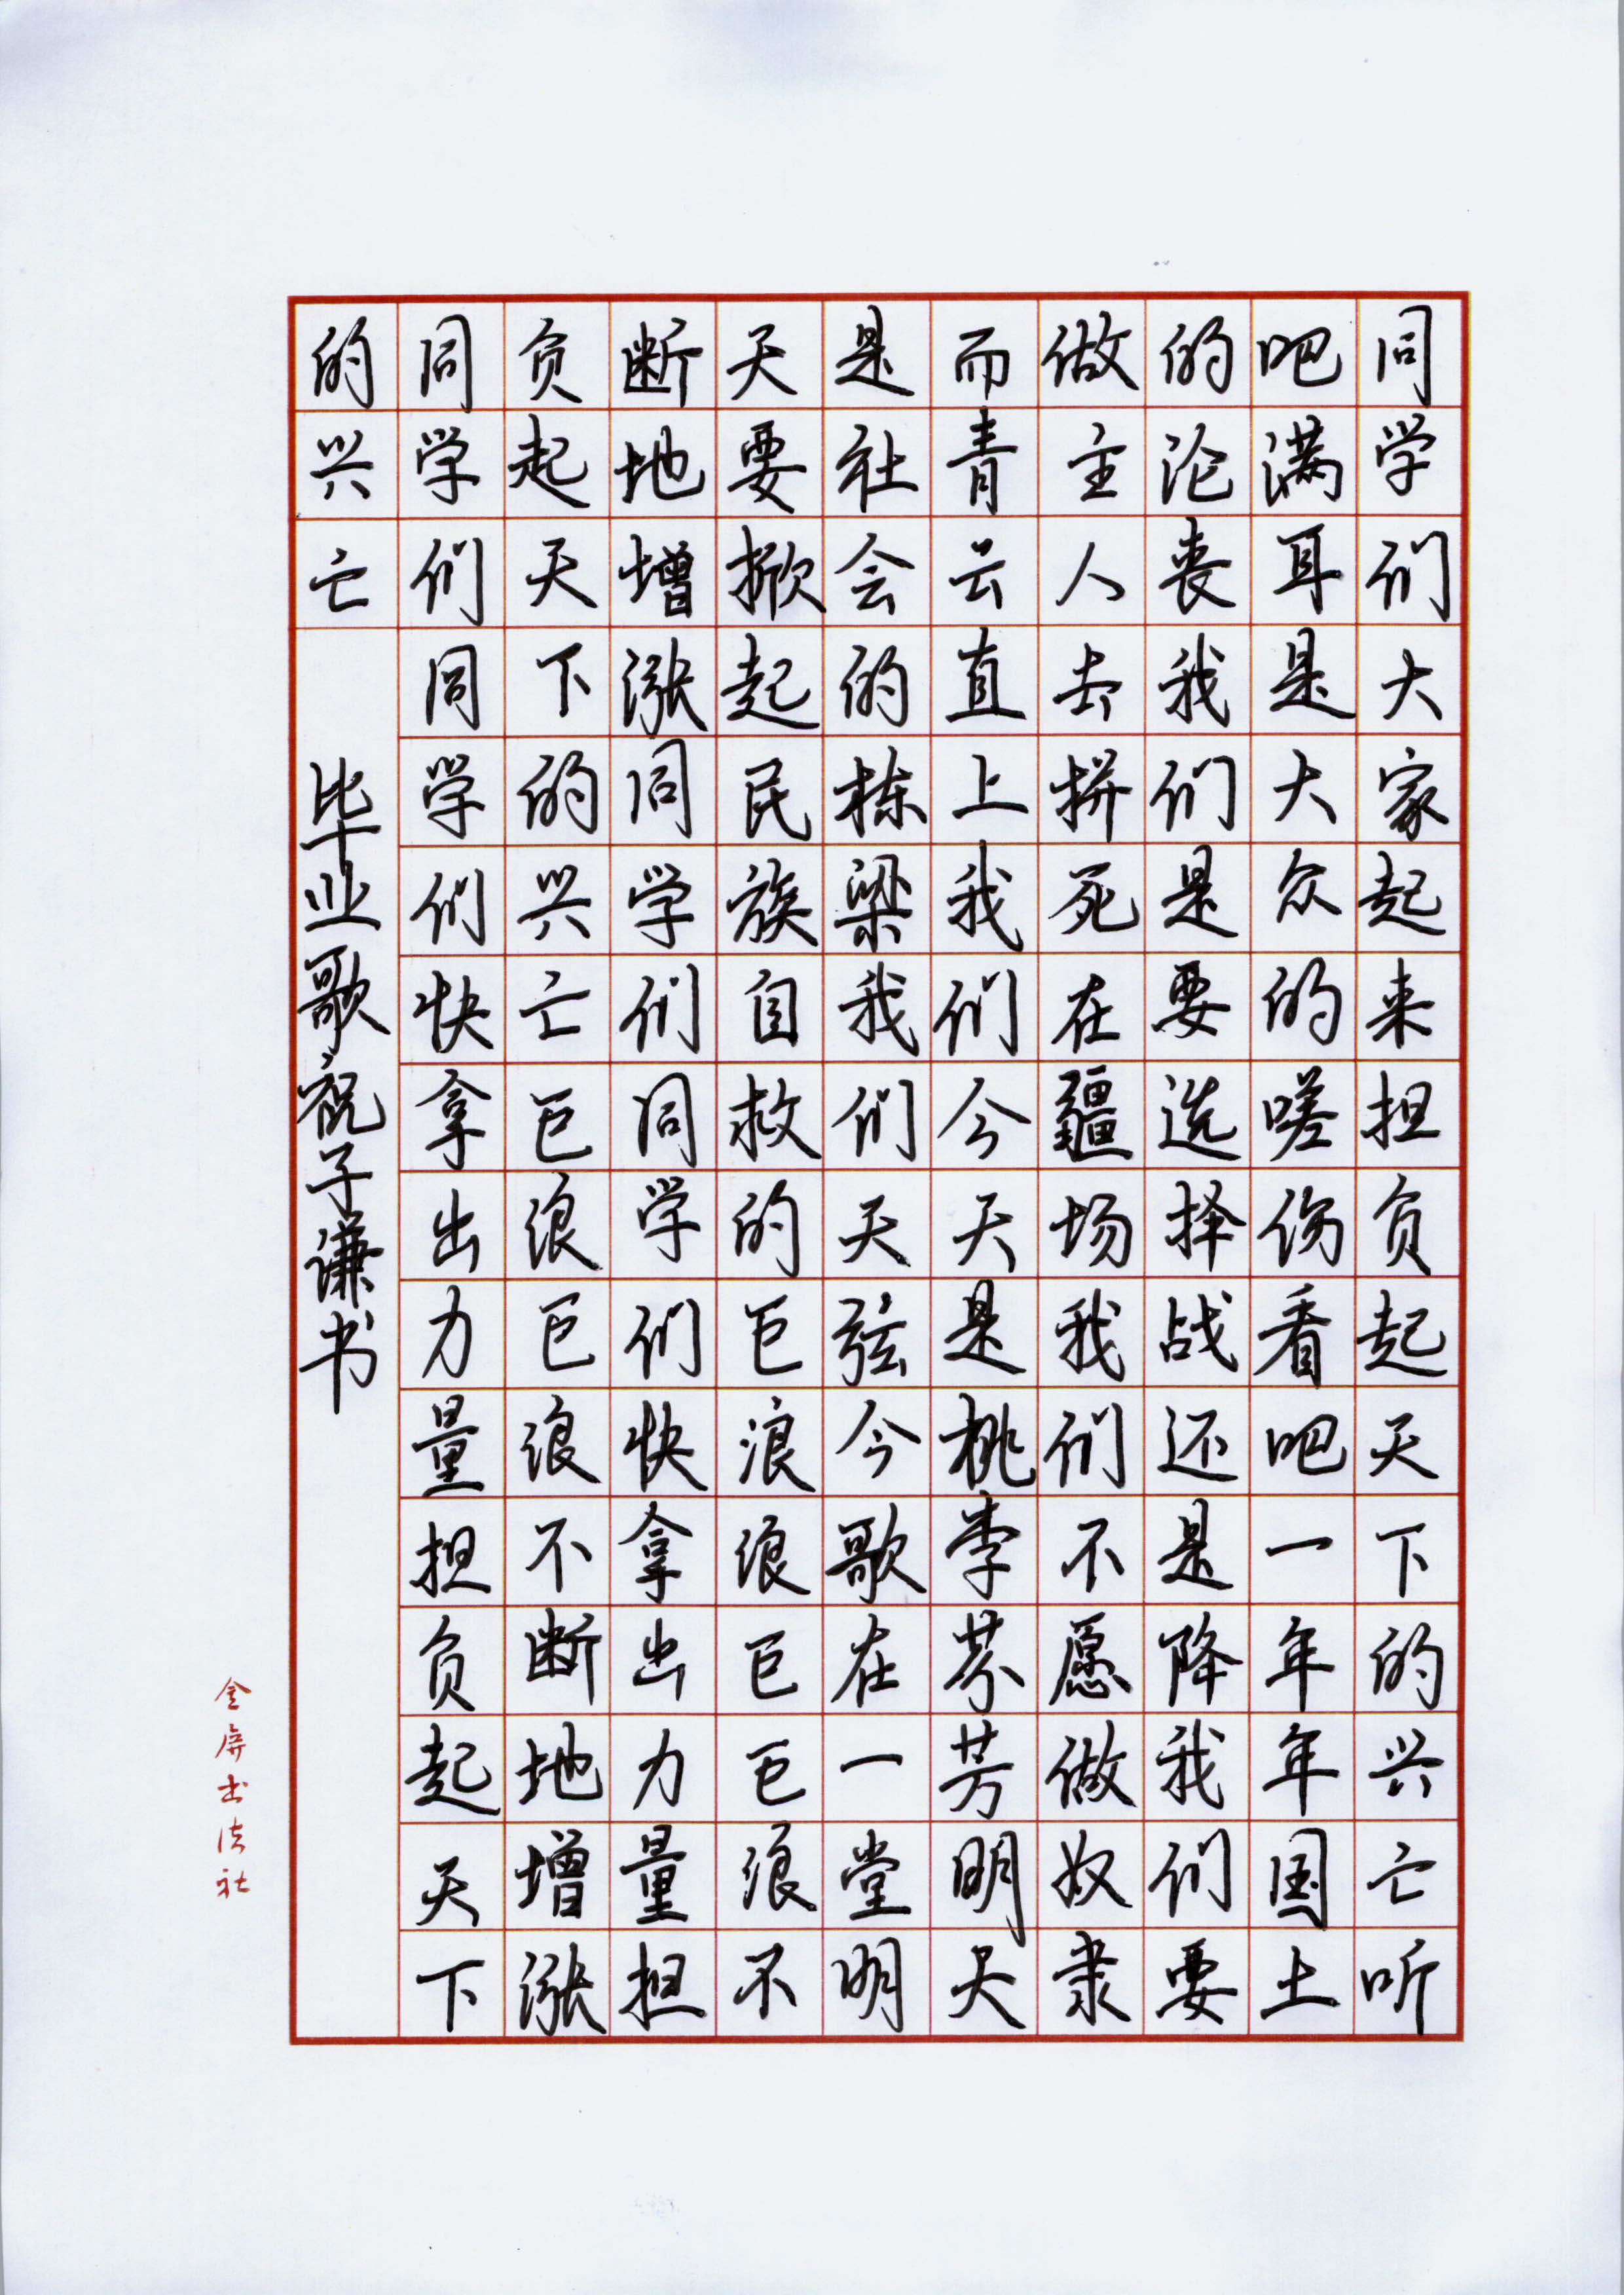 同学们大家起来担负起天下的兴亡听
吧满耳是大众的嗟伤看吧一年年国土
的沦丧我们是要选择战还是降我们要
做主人去拼死在疆场我们不愿做奴隶
而青云直上我们今天是桃李芬芳明天
是社会的栋梁我们今天弦歌在一堂明
天要掀起民族自救的巨浪浪巨巨浪不
断地增涨同学们同学们快拿出力量担
负起天下的兴亡巨浪巨浪不断地增涨
同学们同学们快拿出力量担负起天下
的兴亡
毕业歌祝子谦书
金屏书法社